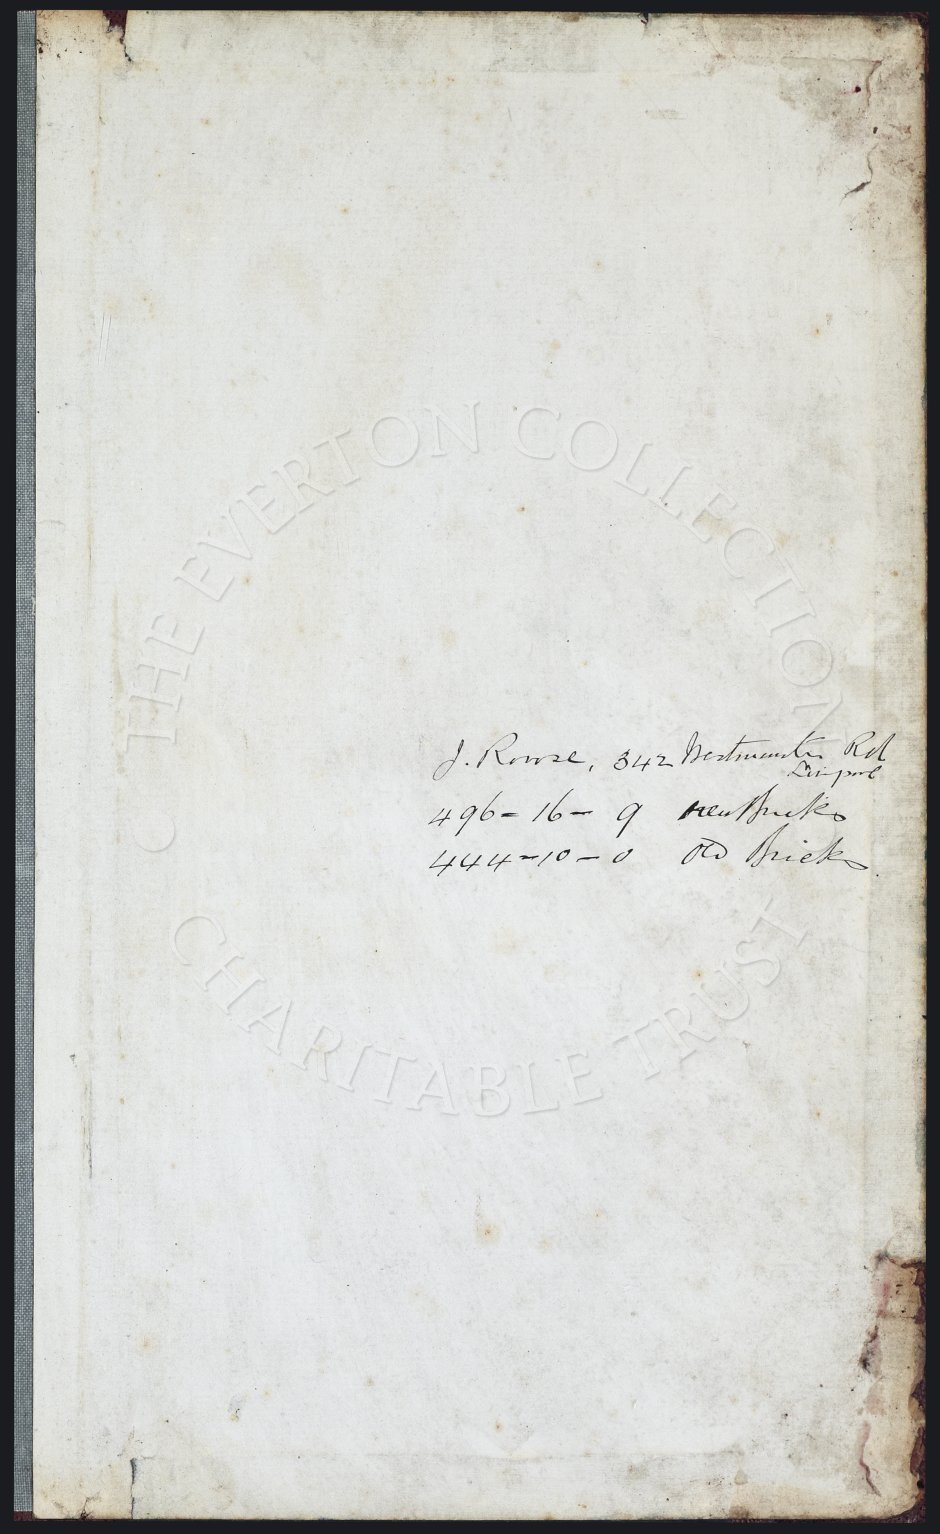 THE EVERTON COLLECTION
J. Rowse, 342 Westminster Rd
Liverpool
496 - 16 - 9 new Bricks
444 - 10 - 0 Old Bricks.
CHARITABLE TRUST